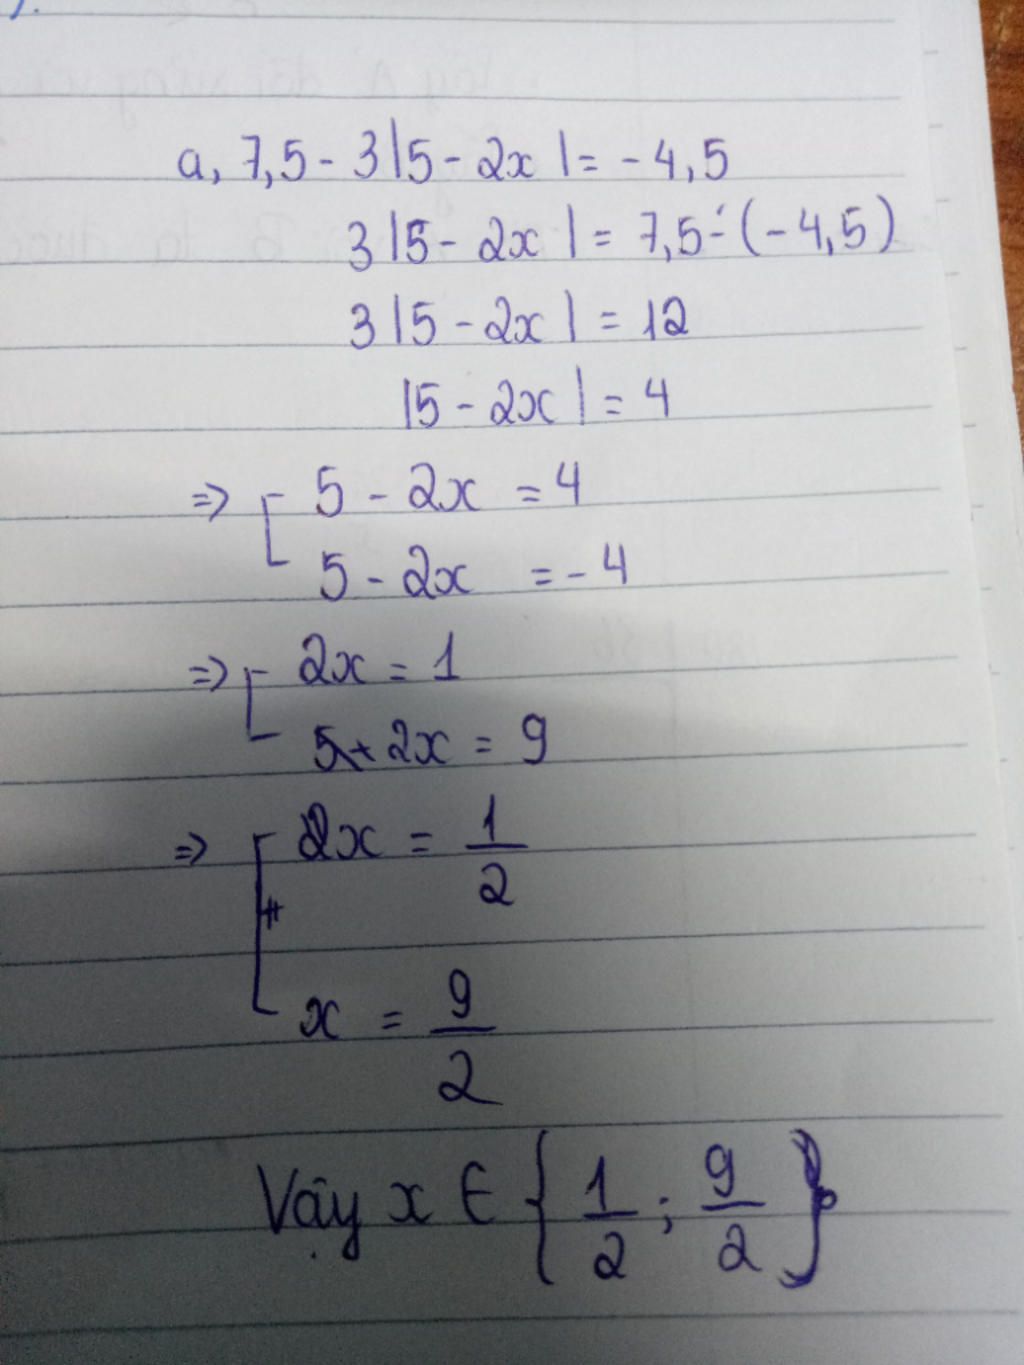 a, 7,5 - 3|5 - 2x| = -4,5
3|5 - 2x| = 7,5 - (-4,5)
3|5 - 2x| = 12
|5 - 2x| = 4
=> [ 5 - 2x = 4
5 - 2x = -4
=> [ 2x = 1
2x = 9
=> [ x = 1/2
x = 9/2
Vậy x ∈ { 1/2 ; 9/2 }